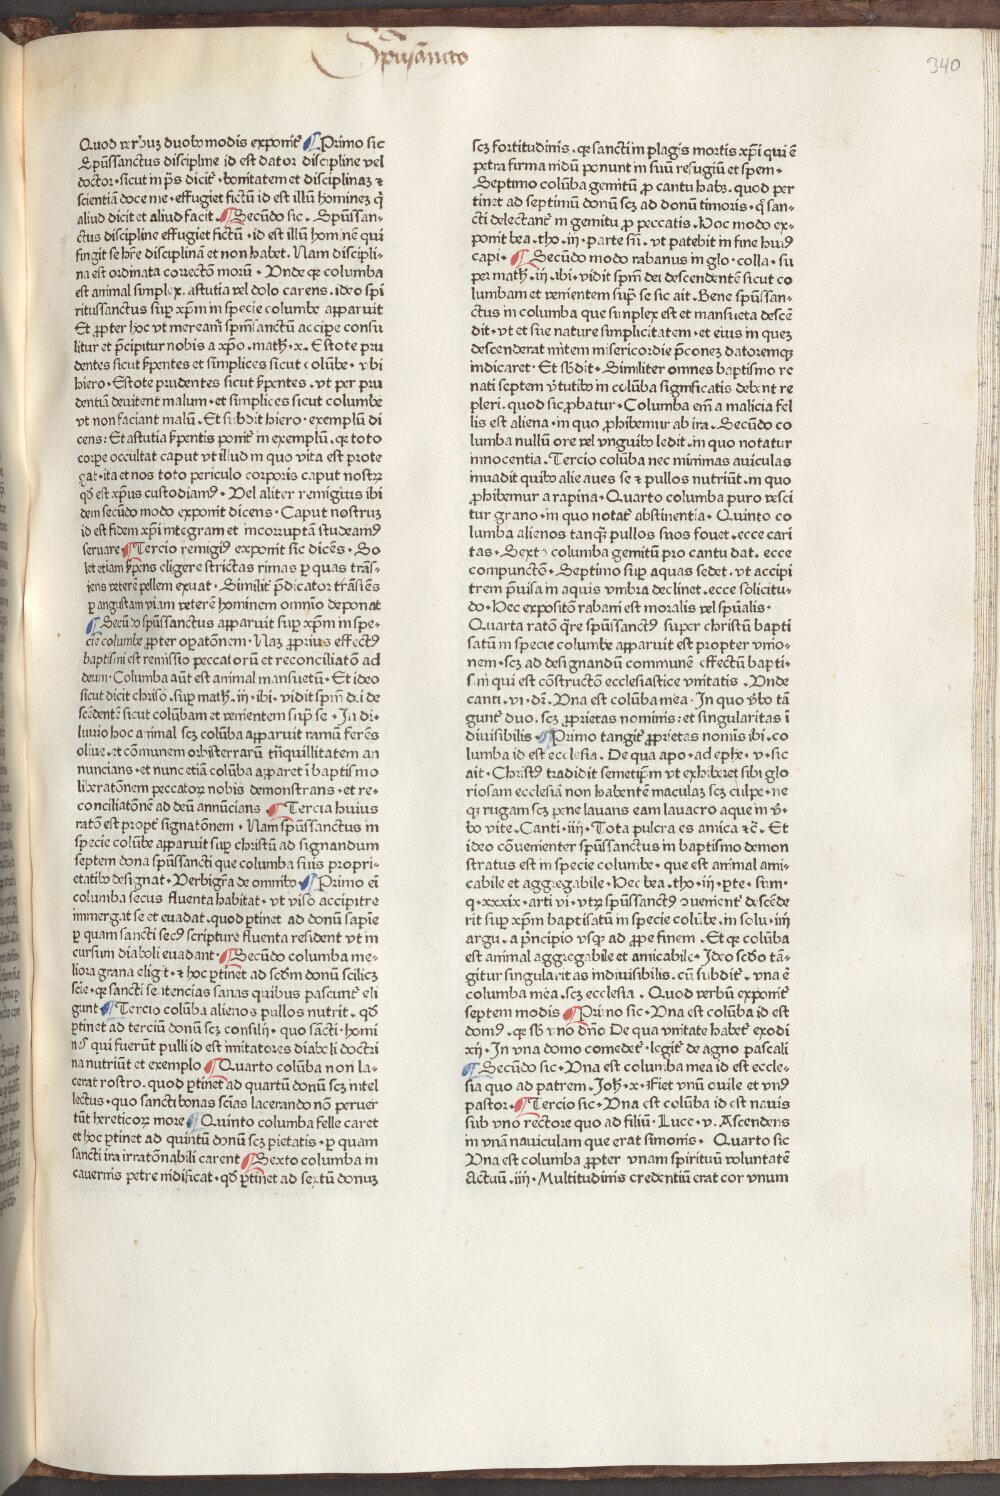 Spūsancto
340
Quod verbuz duobꝰ modis exponit᷑ ¶ Primo sic
Spūssanctus discipline id est dator discipline vel
doctor · sicut in ps̄ dicit᷑ · bonitatem et disciplinaz ⁊
scientiā doce me · effugiet fictū id est illū hominez q̄
aliud dicit et aliud facit . ¶ Secūdo sic . Spūssan-
ctus discipline effugiet fictū · id est illū hominē qui
fingit se hr̄e disciplinā et non habet. Nam discipli-
na est ordinata correctō morū · Unde qꝛ columba
est animal simplex. astutia vel dolo carens. ideo spi
ritussanctus suꝑ xp̄m in specie columbe apparuit
Et ꝓpter hoc vt meream̄ spm̄sanctū accipe consu
litur et p̄cipitur nobis a xp̄o · math · x · Estote pru
dentes sicut ẜpentes et simplices sicut colūbe · vbi
hiero · Estote prudentes sicut ẜpentes · vt per pru
dentiā deuitent malum · et simplices sicut columbe
vt non faciant malū . Et subdit hiero · exemplū di
cens: Et astutia ẜpentis ponit᷑ in exemplū · qꝛ toto
corpe occultat caput vt illud in quo vita est prote
gat · ita et nos toto periculo corporis caput nostrꝝ
qd̄ est xp̄us custodiamꝰ · Vel aliter remigius ibi
dem secūdo modo exponit dicens · Caput nostruz
id est fidem xp̄i integram et incorruptā studeamꝰ
seruare ¶ Tercio remigiꝰ exponit sic dicēs · So
let etiam ẜpens eligere strictas rimas ꝑ quas trās-
iens veterē pellem exuat · Similit᷑ p̄dicator trāsiēs
ꝑ angustam viam veterē hominem omnīo deponat
¶ Secūdo spūssanctus apparuit suꝑ xp̄m in spe-
cie columbe ꝓpter opatōnem · Naz ꝓprius effectꝰ
baptismi est remissio peccatorū et reconciliatō ad
deum · Columba aūt est animal mansuetū · Et ideo
sicut dicit chriso . suꝑ math · iii · ibi · vidit spm̄ dei de
scēdentē sicut colūbam et venientem suꝑ se · In di-
luuio hoc animal scꝫ colūba apparuit ramū ferēs
oliue · et cōmunem orbisterrarū tn̄quillitatem an
nuncians · et nunc etiā colūba apparet ī baptismo
liberatōnem peccatoꝝ nobis demonstrans · et re-
conciliatōnē ad deū annūcians . ¶ Tercia huius
ratō est propt᷑ signatōnem · Nam spūssanctus in
specie colūbe apparuit suꝑ christū ad signandum
septem dona spūssancti que columba suis propri-
etatibꝰ designat · Verbigr̄a de omnibꝰ ¶ Primo eī
columba secus fluenta habitat · vt viso accipitre
immergat se et euadat . quod ꝑtinet ad donū sapīe
ꝑ quam sancti secꝰ scripture fluenta resident vt in
cursum diaboli euadant · ¶ Secūdo columba me-
liora grana eligit · ⁊ hoc ꝑtinet ad scd̄m donū scilicꝫ
scīe · qꝛ sancti sentencias sanas quibus pascunt᷑ eli
gunt · ¶ Tercio colūba alienos pullos nutrit . qd̄
ꝑtinet ad terciū donū scꝫ consilij · quo sācti · homi
nes qui fuerūt pulli id est imitatores diaboli doctri
na nutriūt et exemplo ¶ Quarto colūba non la-
cerat rostro. quod ꝑtinet ad quartū donū scꝫ intel
lectus · quo sancti bonas sc̄ias lacerando nō peruer
tūt hereticoꝝ more · ¶ Quinto columba felle caret
et hoc ꝑtinet ad quintū donū scꝫ pietatis · ꝑ quam
sancti ira irratōnabili carent ¶ Sexto columba in
cauernis petre nidificat · qd̄ ꝑtinet ad sextū donuꝫ
scꝫ fortitudinis . qꝛ sancti in plagis mortis xp̄i qui ē
petra firma nidū ponunt in suū refugiū et spem ·
Septimo colūba gemitū ꝓ cantu habꝫ. quod per
tinet ad septimū donū scꝫ ad donū timoris · q̄ san-
cti delectant᷑ in gemitu ꝓ peccatis · Hoc modo ex-
ponit bea . tho . iii · parte sūi . vt patebit in fine huiꝰ
capi · ¶ Secūdo modo rabanus in glo · colla . su
per math̄ . iii . ibi · vidit spm̄ dei descendentē sicut co
lumbam et venientem suꝑ se sic ait . Bene spūssan-
ctus in columba que simplex est et mansueta descē
dit · vt et sue nature simplicitatem · et eius in quez
descenderat mitem misericordie p̄conez datoremqꝫ
indicaret · Et sb̄dit · Similiter omnes baptismo re
nati septem v̄tutibꝰ in colūba significatis debent re
pleri . quod sic ꝓbatur · Columba em̄ a malicia fel
lis est aliena · in quo ꝓhibemur ab ira . Secūdo co
lumba nullū ore vel vnguibꝰ ledit · in quo notatur
innocentia . Tercio colūba nec minimas auiculas
inuadit quibꝰ alie aues se ⁊ pullos nutriūt . in quo
ꝓhibemur a rapina · Quarto columba puro vesci
tur grano · in quo notat᷑ abstinentia · Quinto co
lumba alienos tanqꝫ pullos suos fouet · ecce cari
tas · Sexto columba gemitū pro cantu dat . ecce
compunctō · Septimo suꝑ aquas sedet · vt accipi
trem p̄uisa in aquis vmbra declinet . ecce solicitu-
do · Hec expositō rabani est moralis vel spūalis ·
Quarta ratō q̄re spūssanctꝰ super christū bapti
satū in specie columbe apparuit est propter vnio-
nem · scꝫ ad designandū communē effectū bapti-
smi qui est cōstructō ecclesiastice vnitatis . Unde
canti . vi · dr̄ . Una est colūba mea · In quo v̄bo tā
gunt᷑ duo . scꝫ ꝓprietas nominis: et singularitas ī
diuisibilis · ¶ Primo tangit᷑ ꝓprietas nomīs ibi . co
lumba id est ecclesia . De qua apo · ad ephe · v · sic
ait · Christꝰ tradidit semetip̄m vt exhiberet sibi glo
riosam ecclesiā non habentē maculaꝫ scꝫ culpe · ne
qꝫ rugam scꝫ pene lauans eam lauacro aque in v̄-
bo vite . Canti · iiij · Tota pulcra es amica ⁊c̄ . Et
ideo cōuenienter spūssanctus in baptismo demon
stratus est in specie columbe · que est animal ami-
cabile et aggregabile · Hec bea . tho · iij · ꝑte · sum·
q · xxxix · arti vi · vtꝝ spūssanctꝰ ꝯuenient᷑ descēde
rit suꝑ xp̄m baptisatū in specie colūbe . in solu · iiij
argu . a p̄ncipio vsqꝫ ad ꝓpe finem . Et qꝛ colūba
est animal aggregabile et amicabile · Ideo scd̄o tā-
gitur singularitas indiuisibilis . cū subdit᷑ · vna ē
columba mea . scꝫ ecclesia . Quod verbū exponit᷑
septem modis ¶ Primo sic · Una est colūba id est
domꝰ . qꝛ sb̄ vno dn̄o De qua vnitate habet᷑ exodi
xij · In vna domo comedet᷑ · legit᷑ de agno pascali
¶ Secūdo sic · Una est columba mea id est eccle-
sia quo ad patrem . Joh̄ · x · Fiet vnū ouile et vnꝰ
pastor · ¶ Tercio sic · Una est colūba id est nauis
sub vno rectore quo ad filiū · Luce · v . Ascendens
in vnā nauiculam que erat simonis · Quarto sic
Una est columba ꝓpter vnam spirituū voluntatē
Actuū . iiij · Multitudinis credentiū erat cor vnum